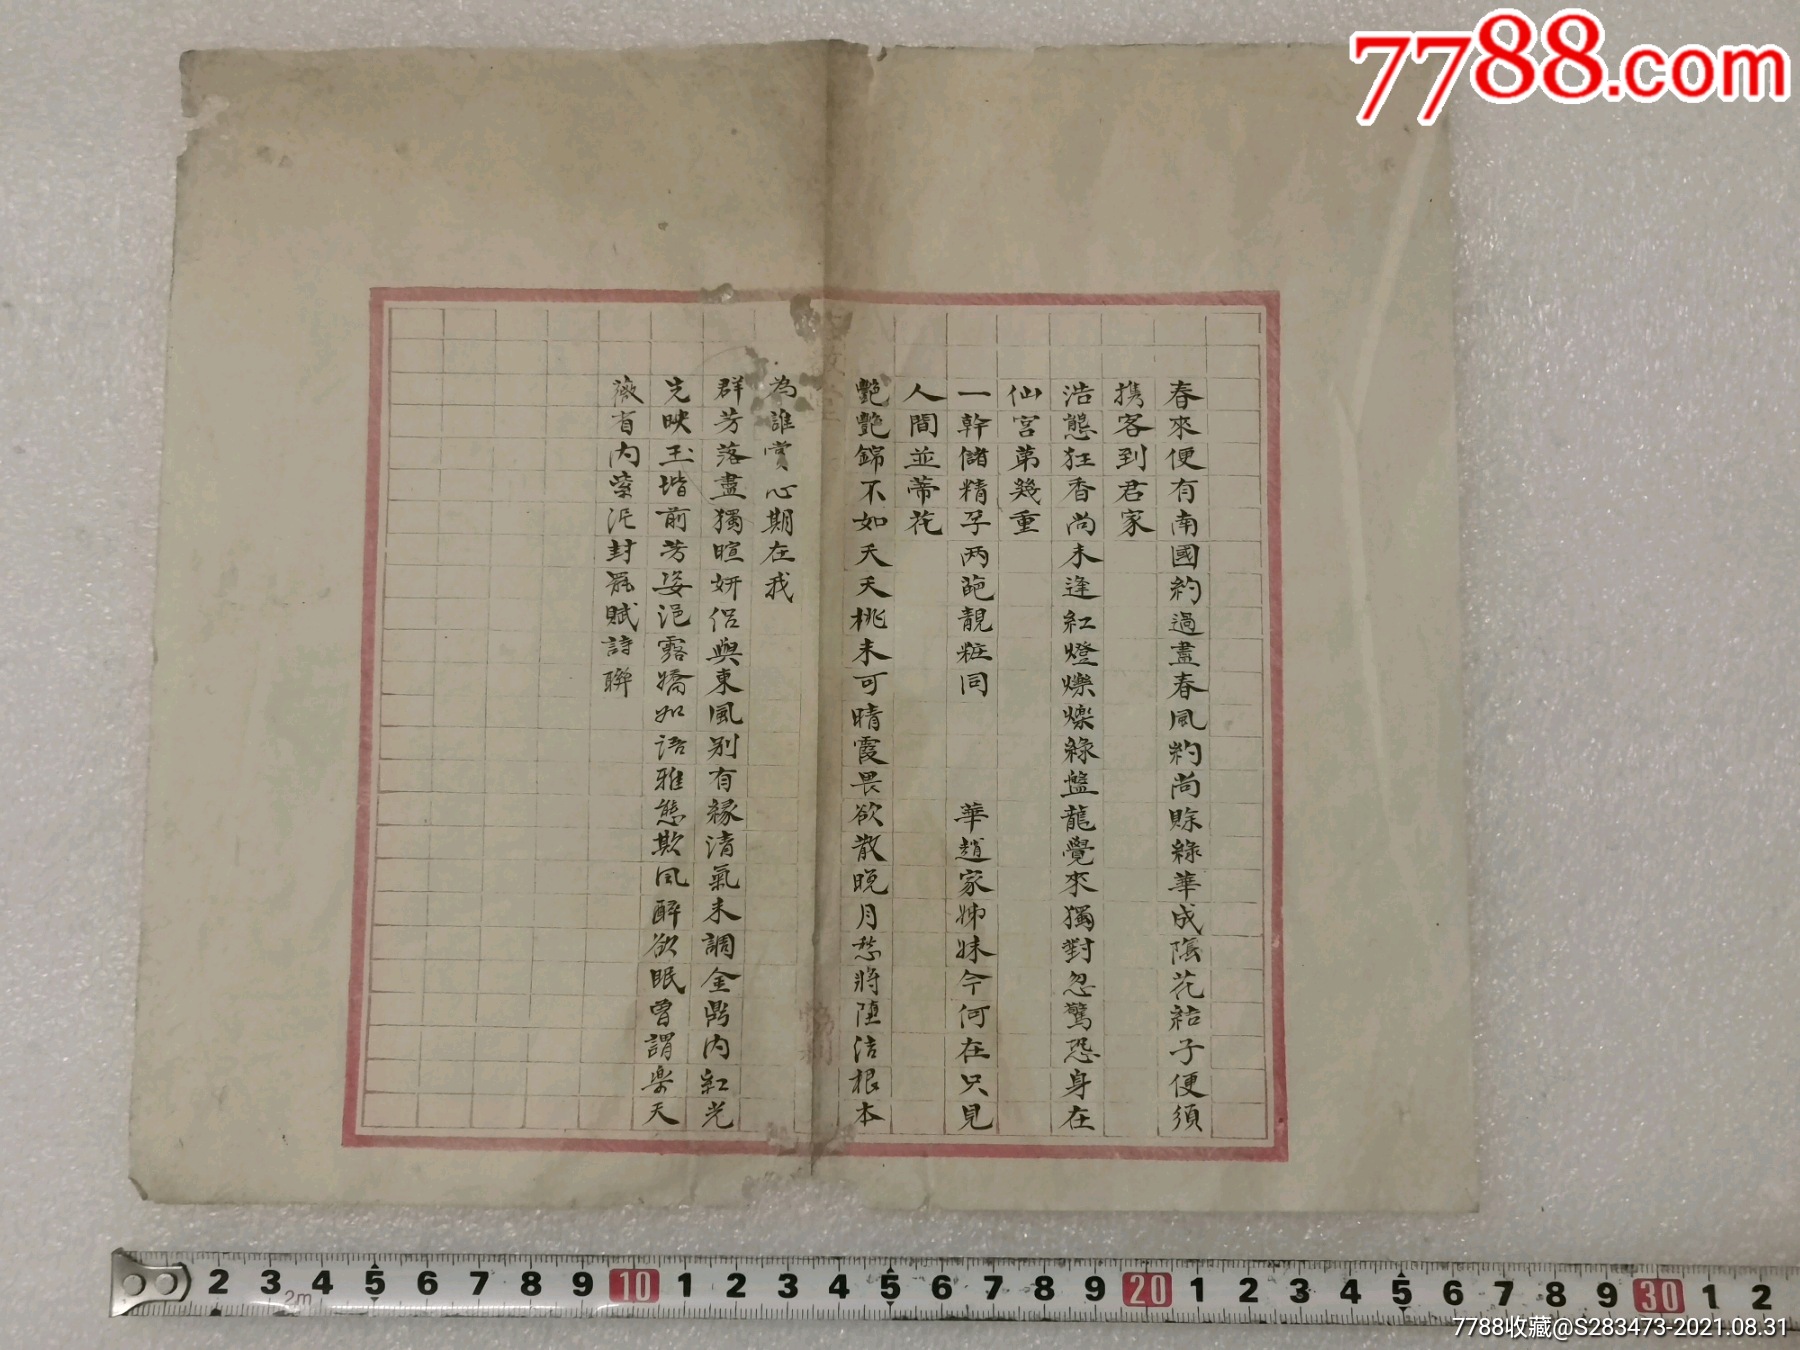 7788.com
春來便有南國約過盡春風約尚賒綠華成隂花結子便須
携客到君家
浩態狂香尚未逢紅燈爍爍綠盤龍覺來獨對忽驚恐身在
仙宮第幾重
一幹儲精孕两葩靚粧同 華趙家姊妹今何在只見
人間並蒂花
艷艷錦不如夭夭桃未可晴霞畏欲散晚月愁將墮洁根本
為誰賞心期在我
群芳落盡獨暄妍侣與東風别有緣清氣未調金鼎内紅光
先映玉堦前芳姿浥露嬌如語雅態欺風醉欲眠曾謂樂天
薇省内紫泥封罷賦詩聯
2 3 4 5 6 7 8 9 10 1 2 3 4 5 6 7 8 9 20 1 2 3 4 5 6 7 8 9 30 1 2
2m
7788收藏@S283473-2021.08.31